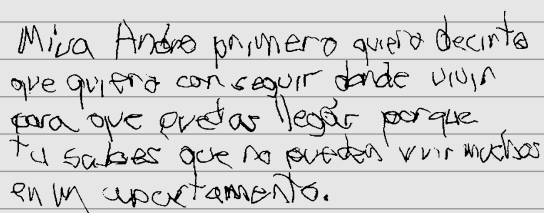 Mira Andre primero quiero decirte
que quiero conseguir donde vivir
para que puedas llegar porque
tu sabes que no pueden vivir muchos
en un apartamento.